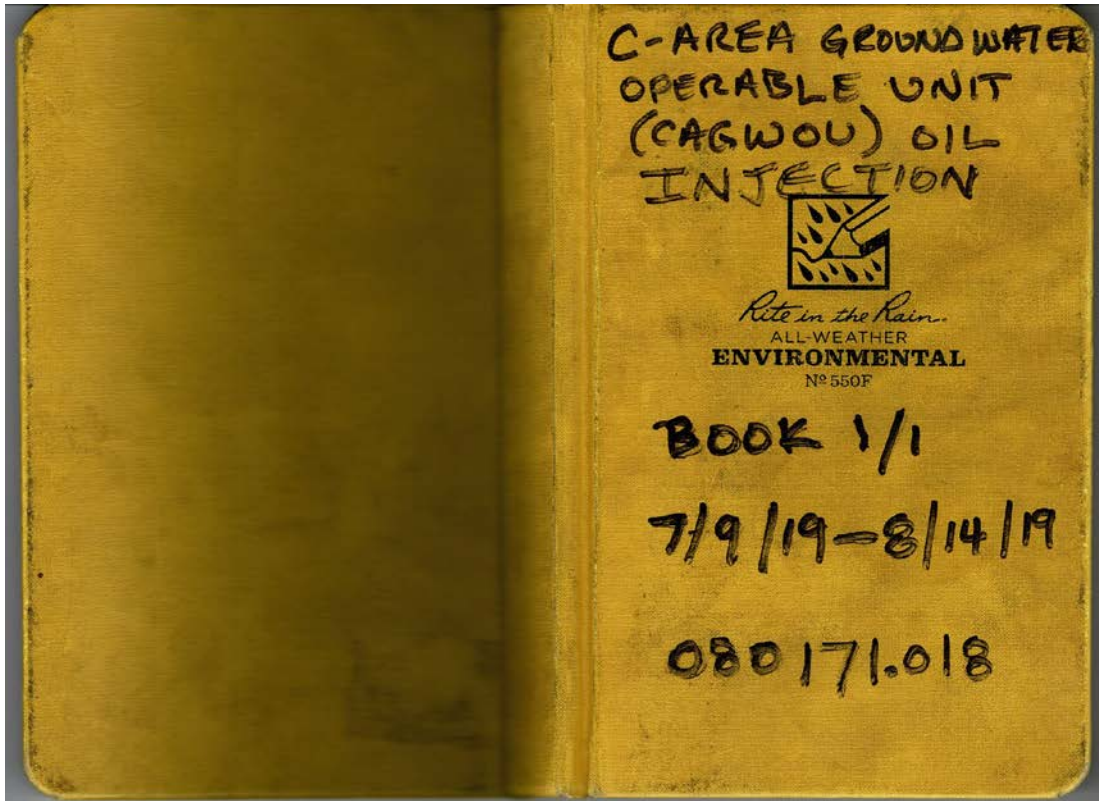 C-AREA GROUNDWATER
OPERABLE UNIT
(CAGWOU) OIL
INJECTION
Rite in the Rain.
ALL-WEATHER
ENVIRONMENTAL
Nº 550F
BOOK 1/1
7/9/19-8/14/19
080171.018